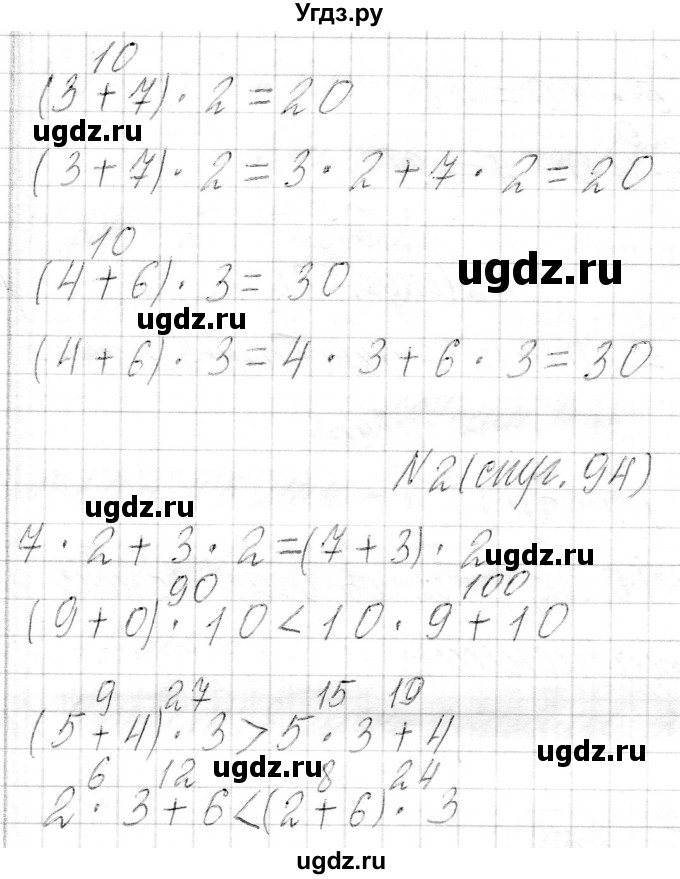 Угдз.ру
10
(3+7)·2=20
ugdz.ru
(3+7)·2=3·2+7·2=20
10
(4+6)·3=30
ugdz.ru
ugdz.ru
(4+6)·3=4·3+6·3=30
N2(стр. 94)
ugdz.ru
7·2+3·2=(7+3)·2
ugdz.ru
90 100
(9+0)·10<10·9+10
9 27 15 19
(5+4)·3>5·3+4
ugdz.ru
ugdz.ru
6 12 8 24
2·3+6<(2+6)·3
ugdz.ru